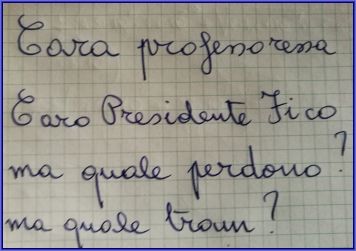 Cara professoressa
Caro Presidente Fico
ma quale perdono?
ma quale traum?